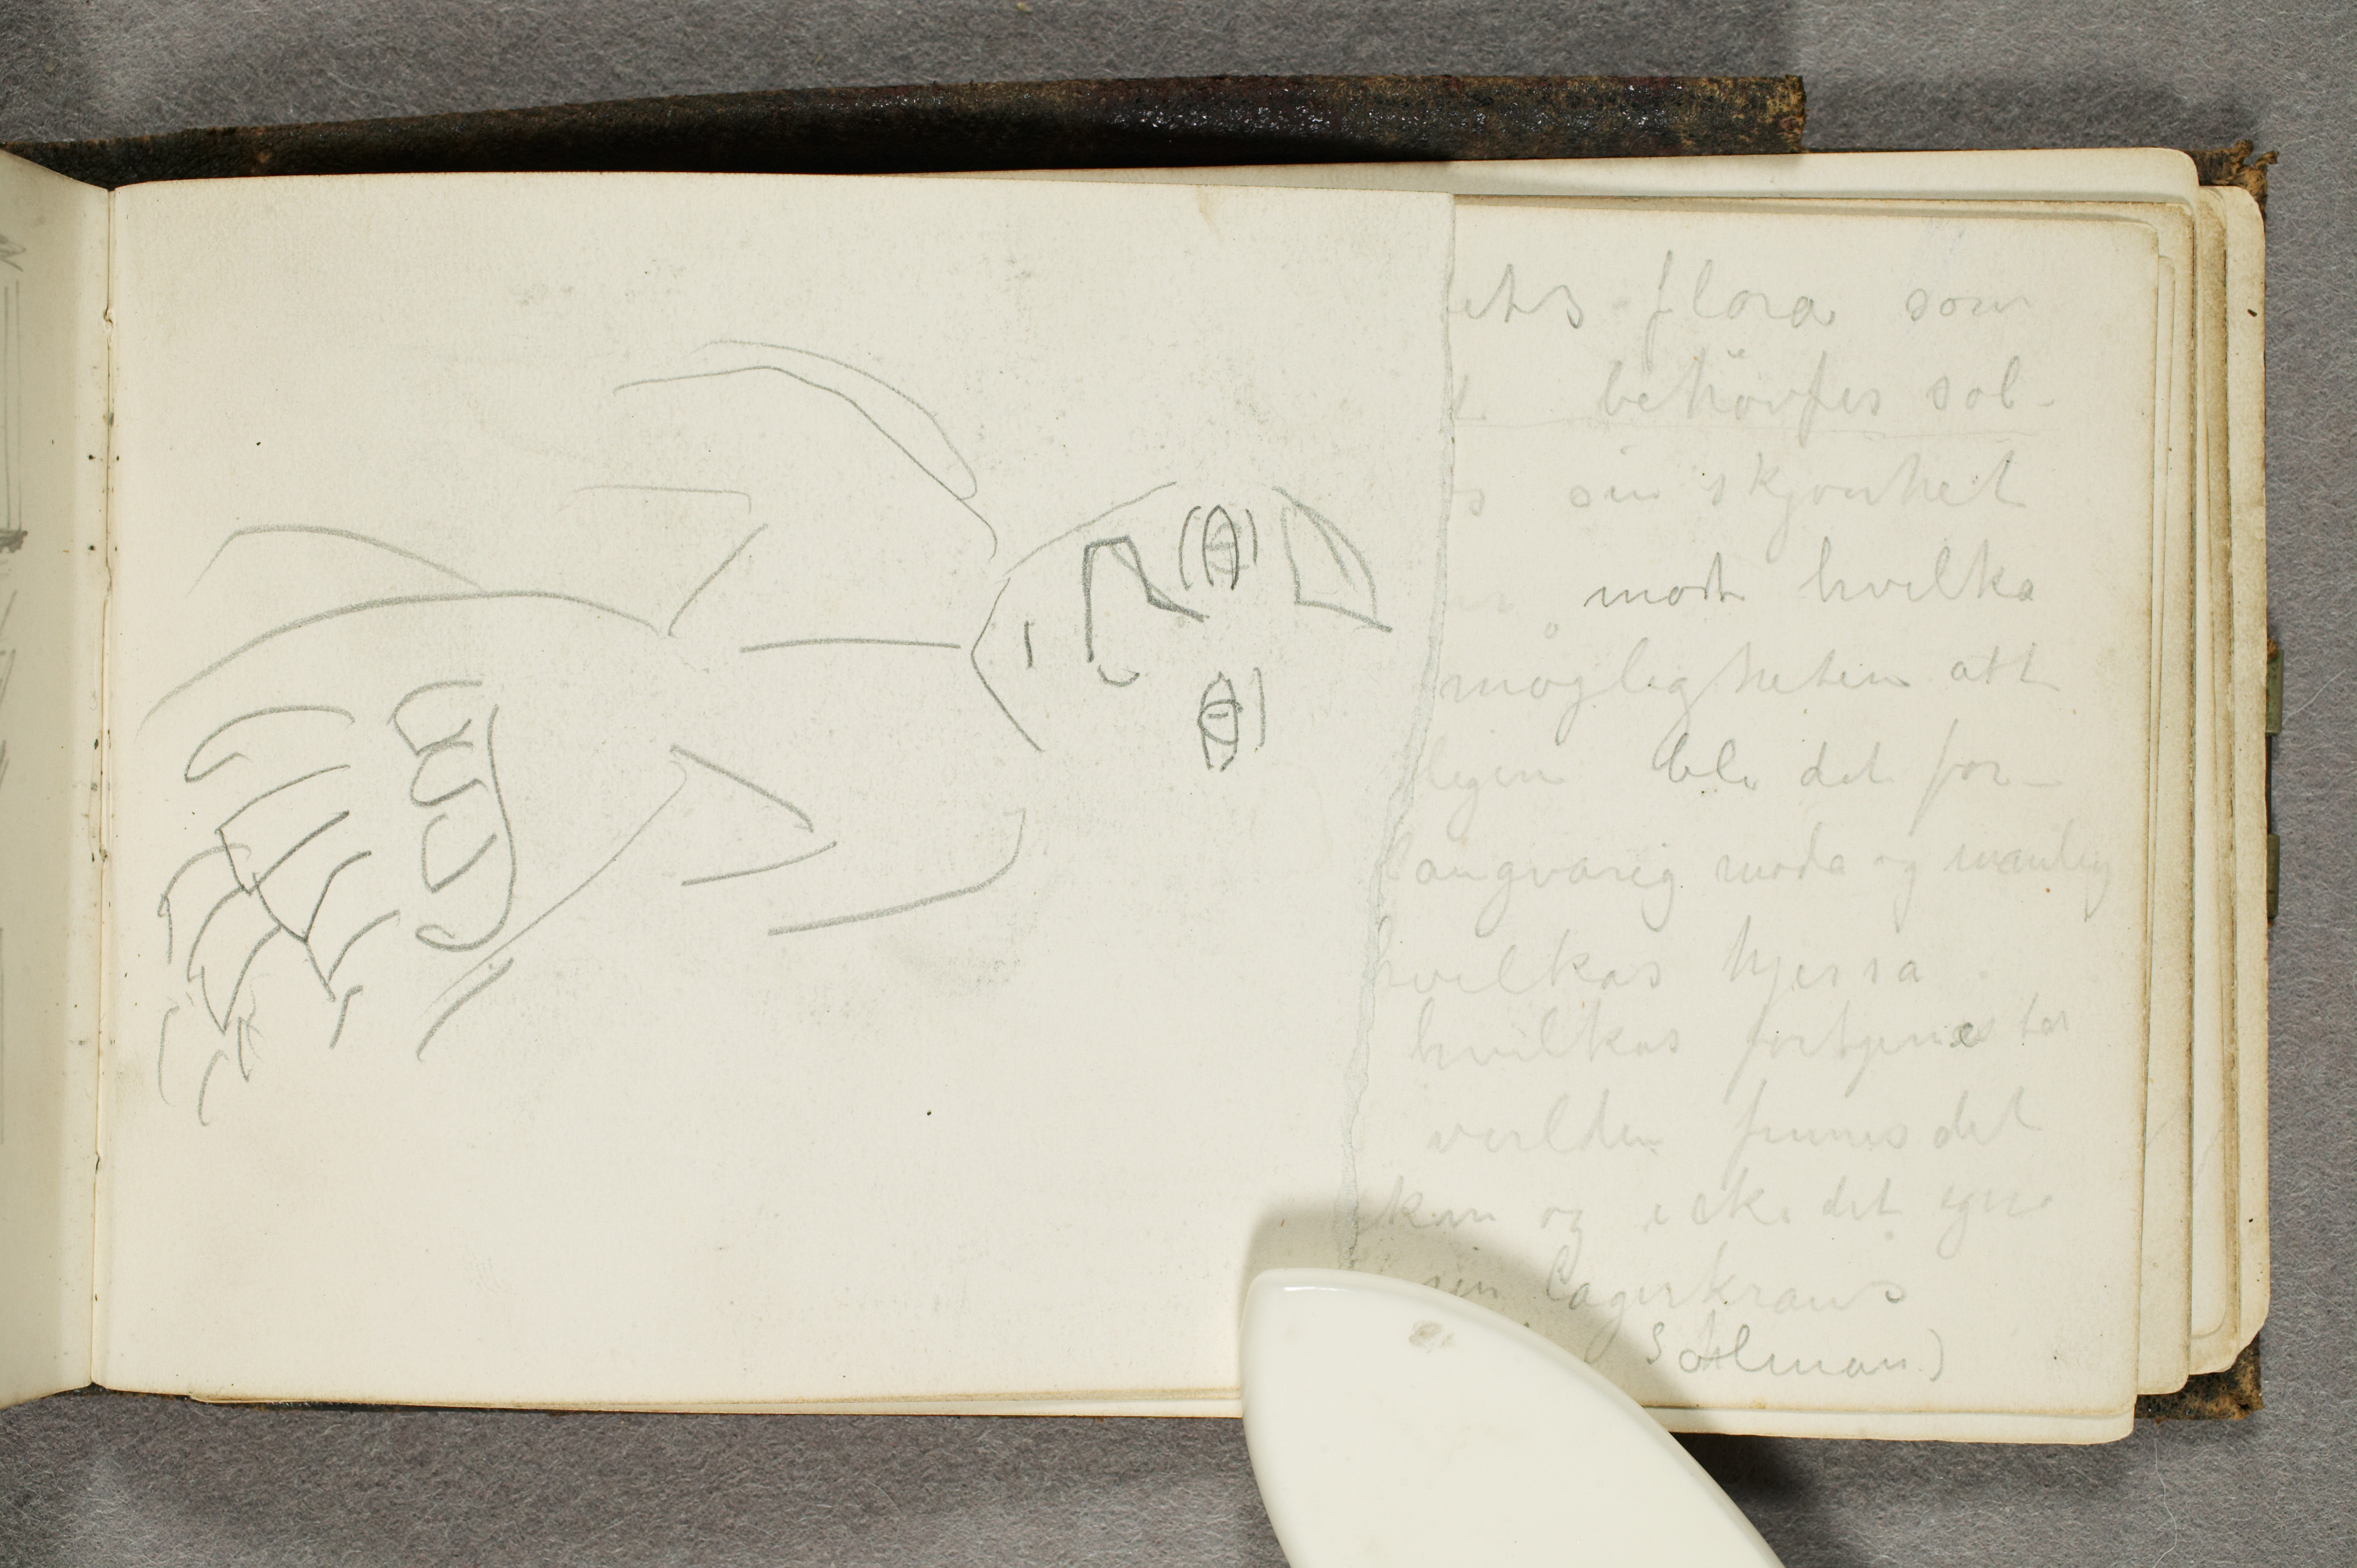 ets flora som
behöfves sol-
s sin skjönhet
mod hvilka
möjligheten att
ligen ble det for-
langvarig möda og manlig
hvilkas hjessa
hvilkas
verlden finnes det
kun og icke det
sin lagerkrans
Sohlman)